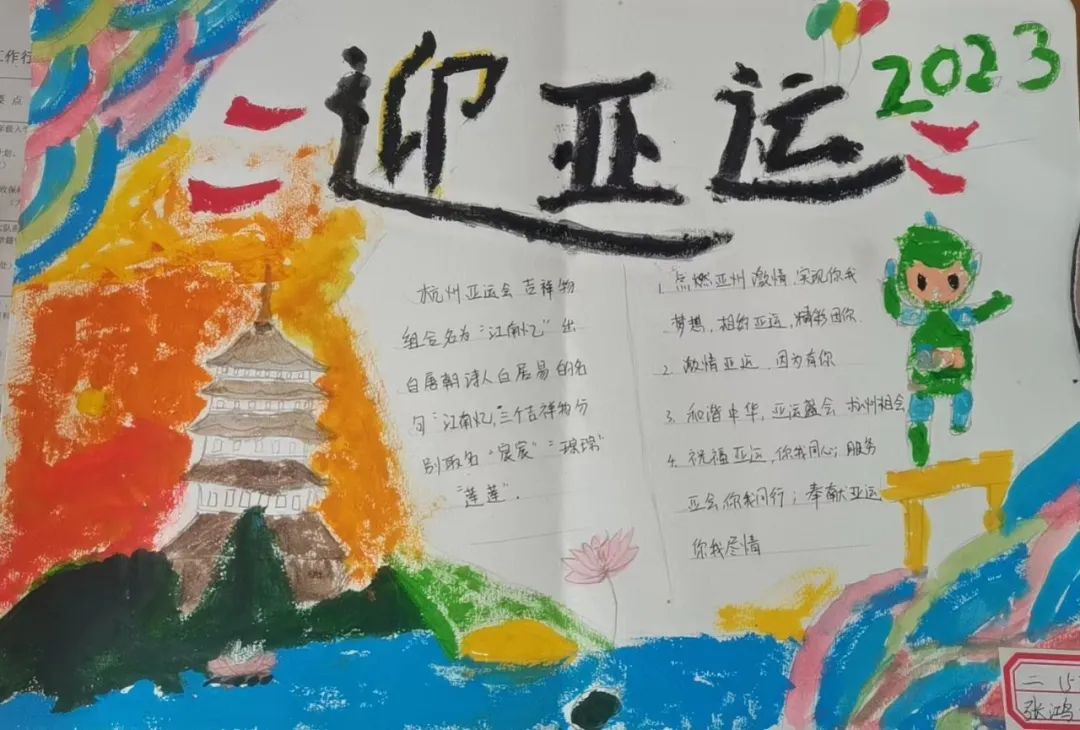 工作行
要 点
迎亚运
2023
杭州亚运会吉祥物
组合名为“江南忆”出
自唐朝诗人白居易的名
句“江南忆,三个吉祥物分
别取名“宸宸”“琮琮”
“莲莲”.
1. 点燃亚州激情,实现你我
梦想,相约亚运,精彩因你.
2. 激情亚运,因为有你
3. 和谐中华,亚运盛会,杭州相会
4. 祝福亚运,你我同心;服务
亚会,你我同行;奉献亚运
你我尽情
二 15
张鸿